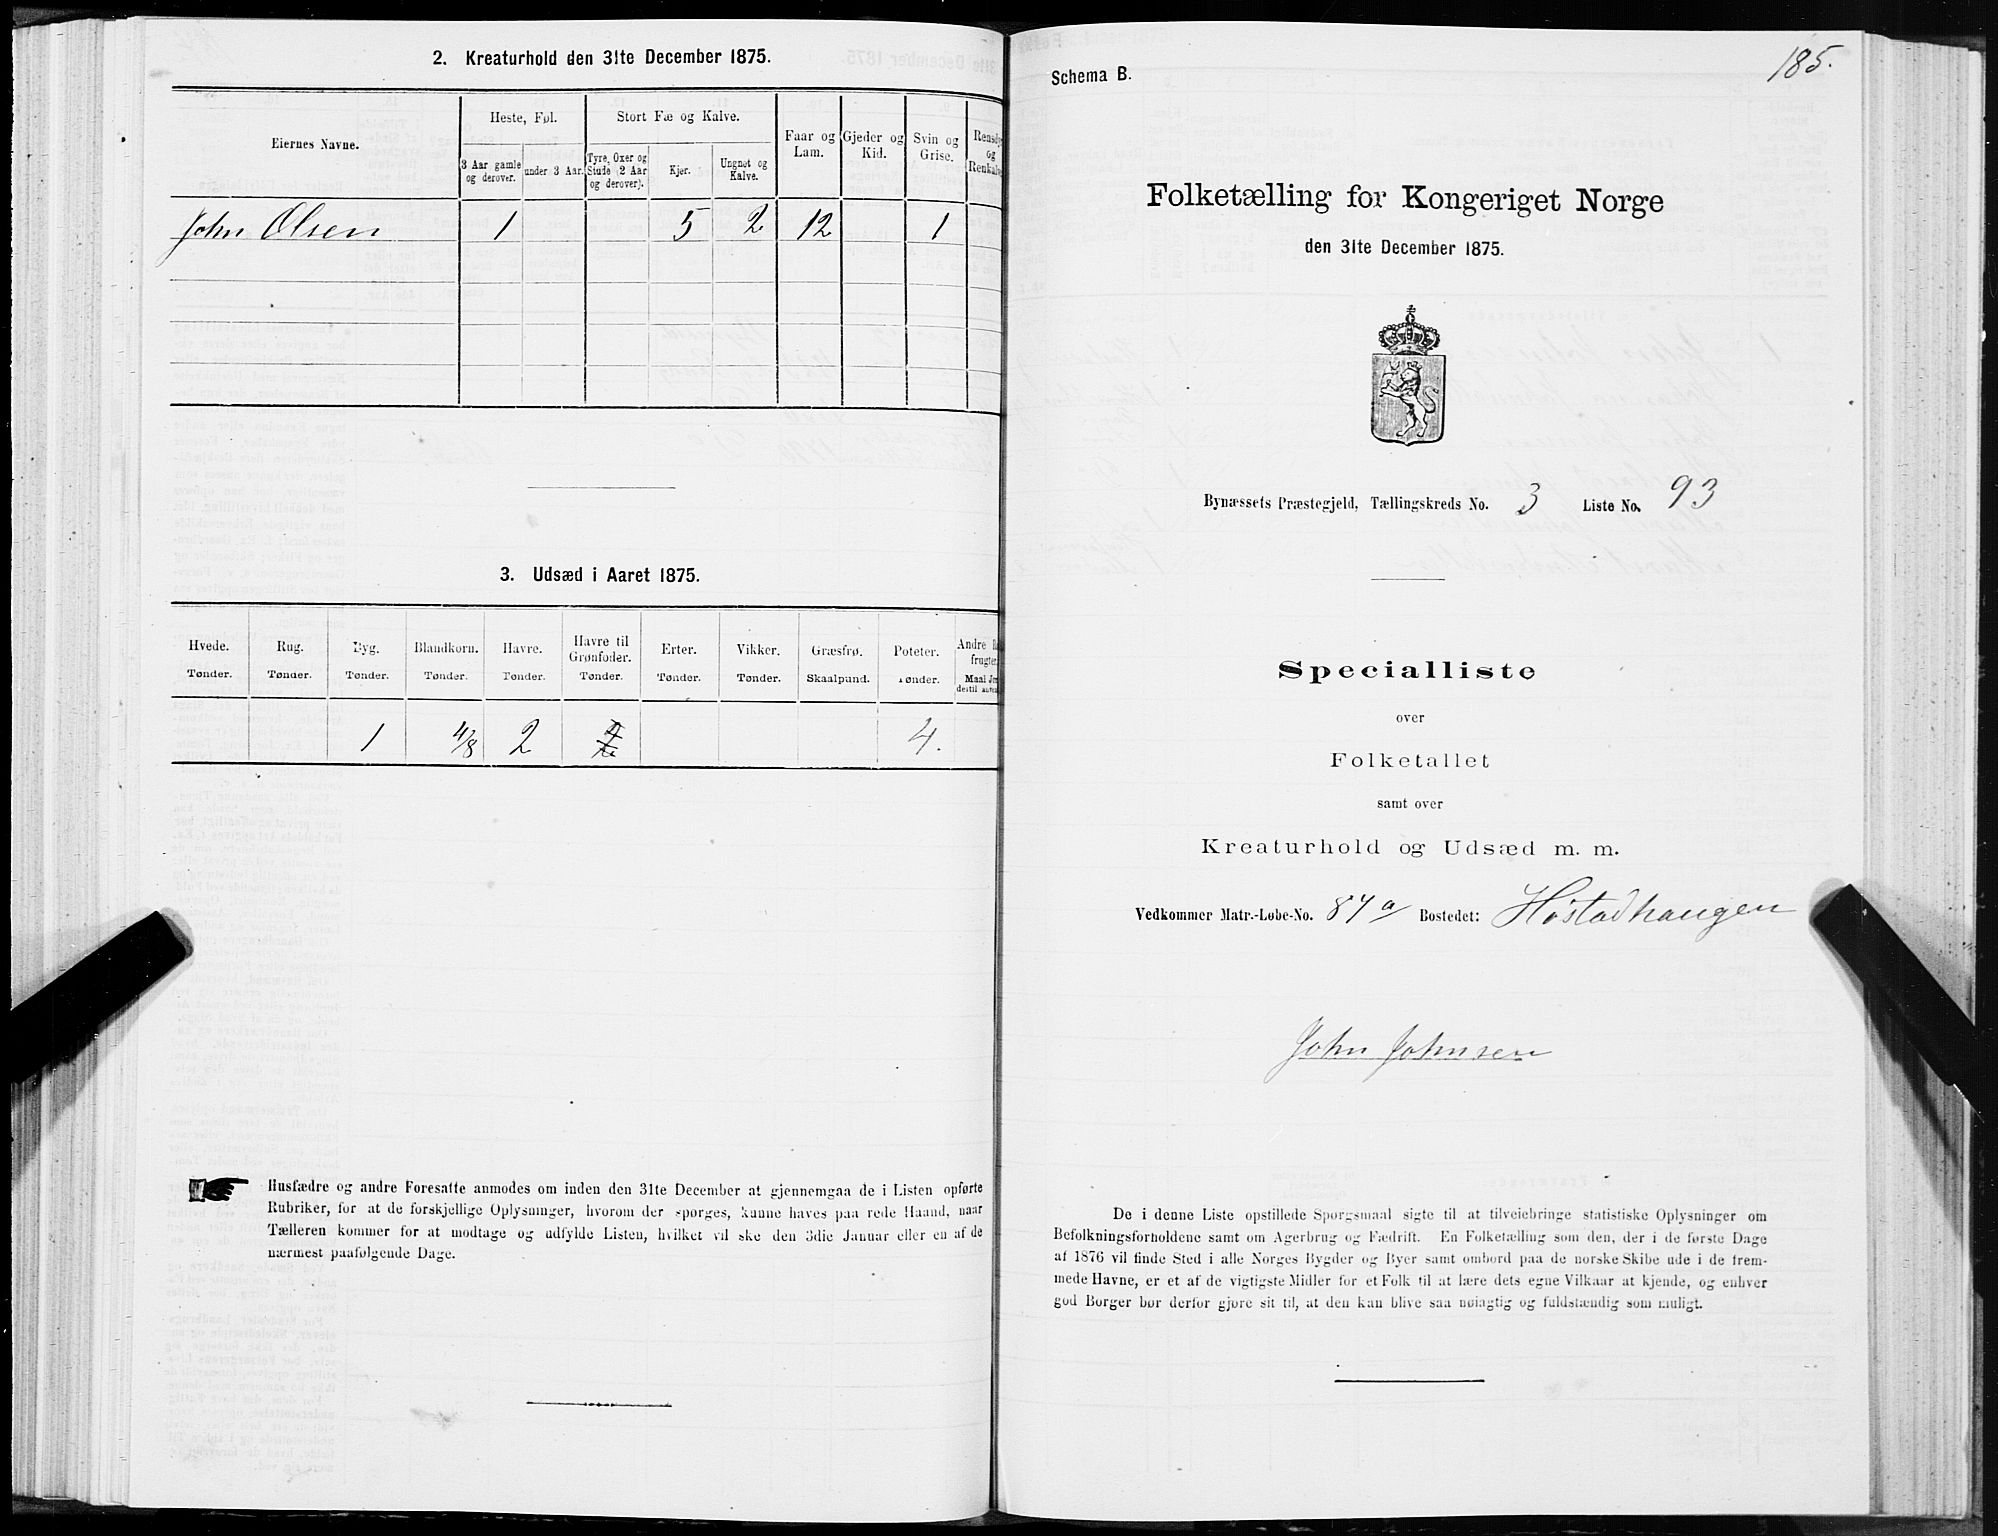 2. Kreaturhold den 31te December 1875.
Eiernes Navne.
Heste, Føl.
Stort Fæ og Kalve.
Faar og Lam.
Gjeder og Kid.
Svin og Grise.
og
3 Aar gamle og derover.
under 3 Aar.
Tyre, Oxer og Stude (2 Aar og derover).
Kjør.
Ungnøt og Kalve.
John Olsen 1 5 2 12 1
3. Udsæd i Aaret 1875.
Hvede. Rug. Byg. Blandkorn. Havre. Havre til Grønfoder. Erter. Vikker. Græsfrø. Poteter. Andre
Tønder. Tønder. Tønder. Tønder. Tønder. Tønder. Tønder. Tønder. Skaalpund. Tønder. Maal
1 4/8 2 4.
Husfædre og andre Foresatte anmodes om inden den 31te December at gjennemgaa de i Listen opførte
Rubriker, for at de forskjellige Oplysninger, hvorom der spørges, kunne haves paa rede Haand, naar
Tælleren kommer for at modtage og udfylde Listen, hvilket vil ske den 3die Januar eller en af de
nærmest paafølgende Dage.
185.
Schema B.
Folketælling for Kongeriget Norge
den 31te December 1875.
Bynæssets Præstegjeld, Tællingskreds No. 3 Liste No. 93
Specialliste
over
Folketallet
samt over
Kreaturhold og Udsæd m. m.
Vedkommer Matr.-Løbe-No. 87a Bostedet: Høstadhaugen
John Johnsen
De i denne Liste opstillede Spørgsmaal sigte til at tilveiebringe statistiske Oplysninger om
Befolkningsforholdene samt om Agerbrug og Fædrift. En Folketælling som den, der i de første Dage
af 1876 vil finde Sted i alle Norges Bygder og Byer samt ombord paa de norske Skibe ude i de frem-
mede Havne, er et af de vigtigste Midler for et Folk til at lære dets egne Vilkaar at kjende, og enhver
god Borger bør derfor gjøre sit til, at den kan blive saa nøiagtig og fuldstændig som muligt.